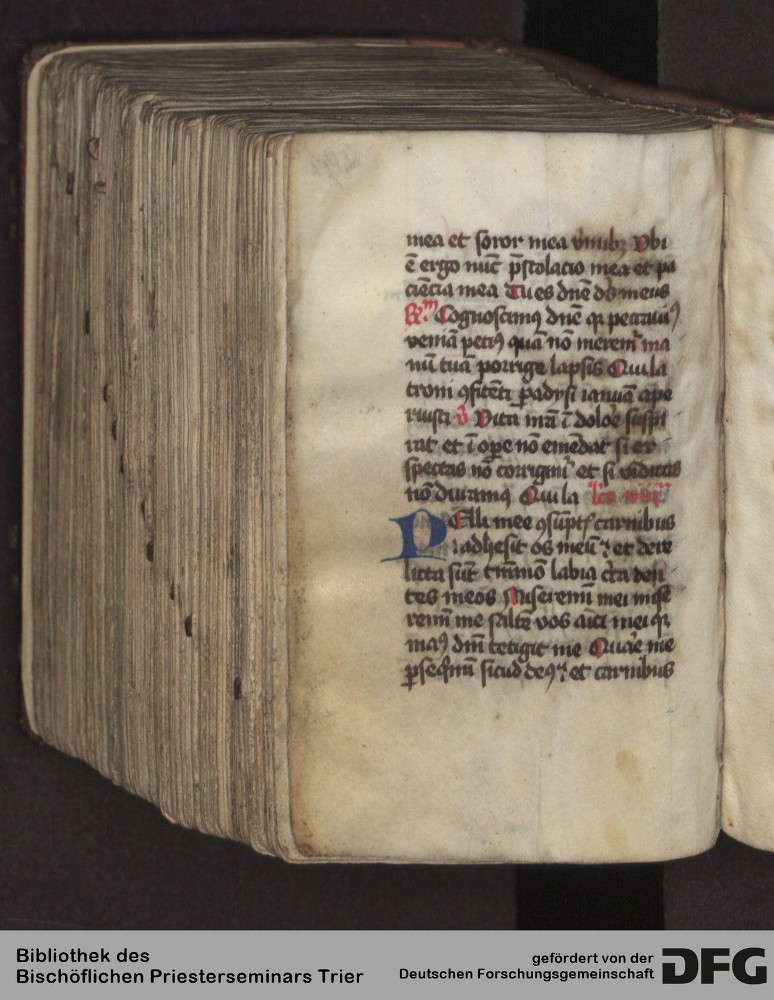 mea et soror mea v̾mibꝫ Vbi
ē ergo nūc p̄stolacio mea et pa
ciēcia mea Tu es dn̄e ds̄ meus
Rᵐ Cognoscimꝯ dn̄e qꝛ peccauiꝯ
veniā petiꝯ quā nō merem̾ ma
nū tuā porrige lapsis Qui la
troni ꝯfitēti ꝑadysi ianuā ape
ruisti v̾ Vita nr̄a ī dolore suspi
rat et ī oꝑe nō emēdat si ex
spectas nō corrigim̾ et si vīdicas
nō duramꝯ Qui la
PElli mee ꝯsūptꝭ carnibus
adhesit os meū et dere
licta sūt tm̄mō labia c̾ca den
tes meos Miseremī mei mise
remī me saltē vos aīci mei qꝛ
manꝯ dn̄i tetigit me Quare me
ꝑseqmī sicud deꝯ et carnibus
Bibliothek des
Bischöflichen Priesterseminars Trier
gefördert von der
Deutschen Forschungsgemeinschaft
DFG